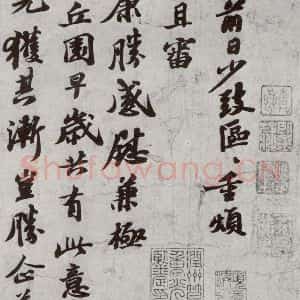 前日少致區〻重煩
且審
康勝感慰兼極
丘園早歲共有此意
先獲其漸豈勝企
Shufawang.CN